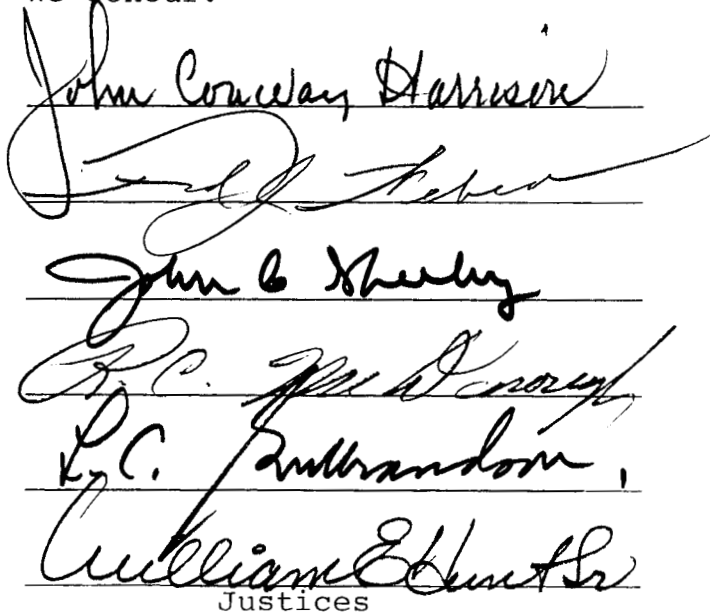 We concur:
John Conway Harrison
Fred J. Weber
John C Sheehy
R. C. McDonough
L. C. Gulbrandson
William E Hunt Sr
Justices